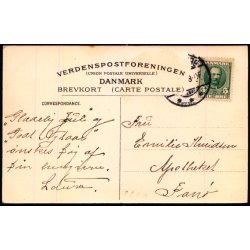 VERDENSPOSTFORENINGEN
(UNION POSTALE UNIVERSELLE)
DANMARK
BREVKORT (CARTE POSTALE)
CORRESPONDANCE.
Glædelig Jul og
Godt Nytaar
ønskes for af
din
Laura.
Frú
Emilie Knudsen
Apotheket
Fanö
5